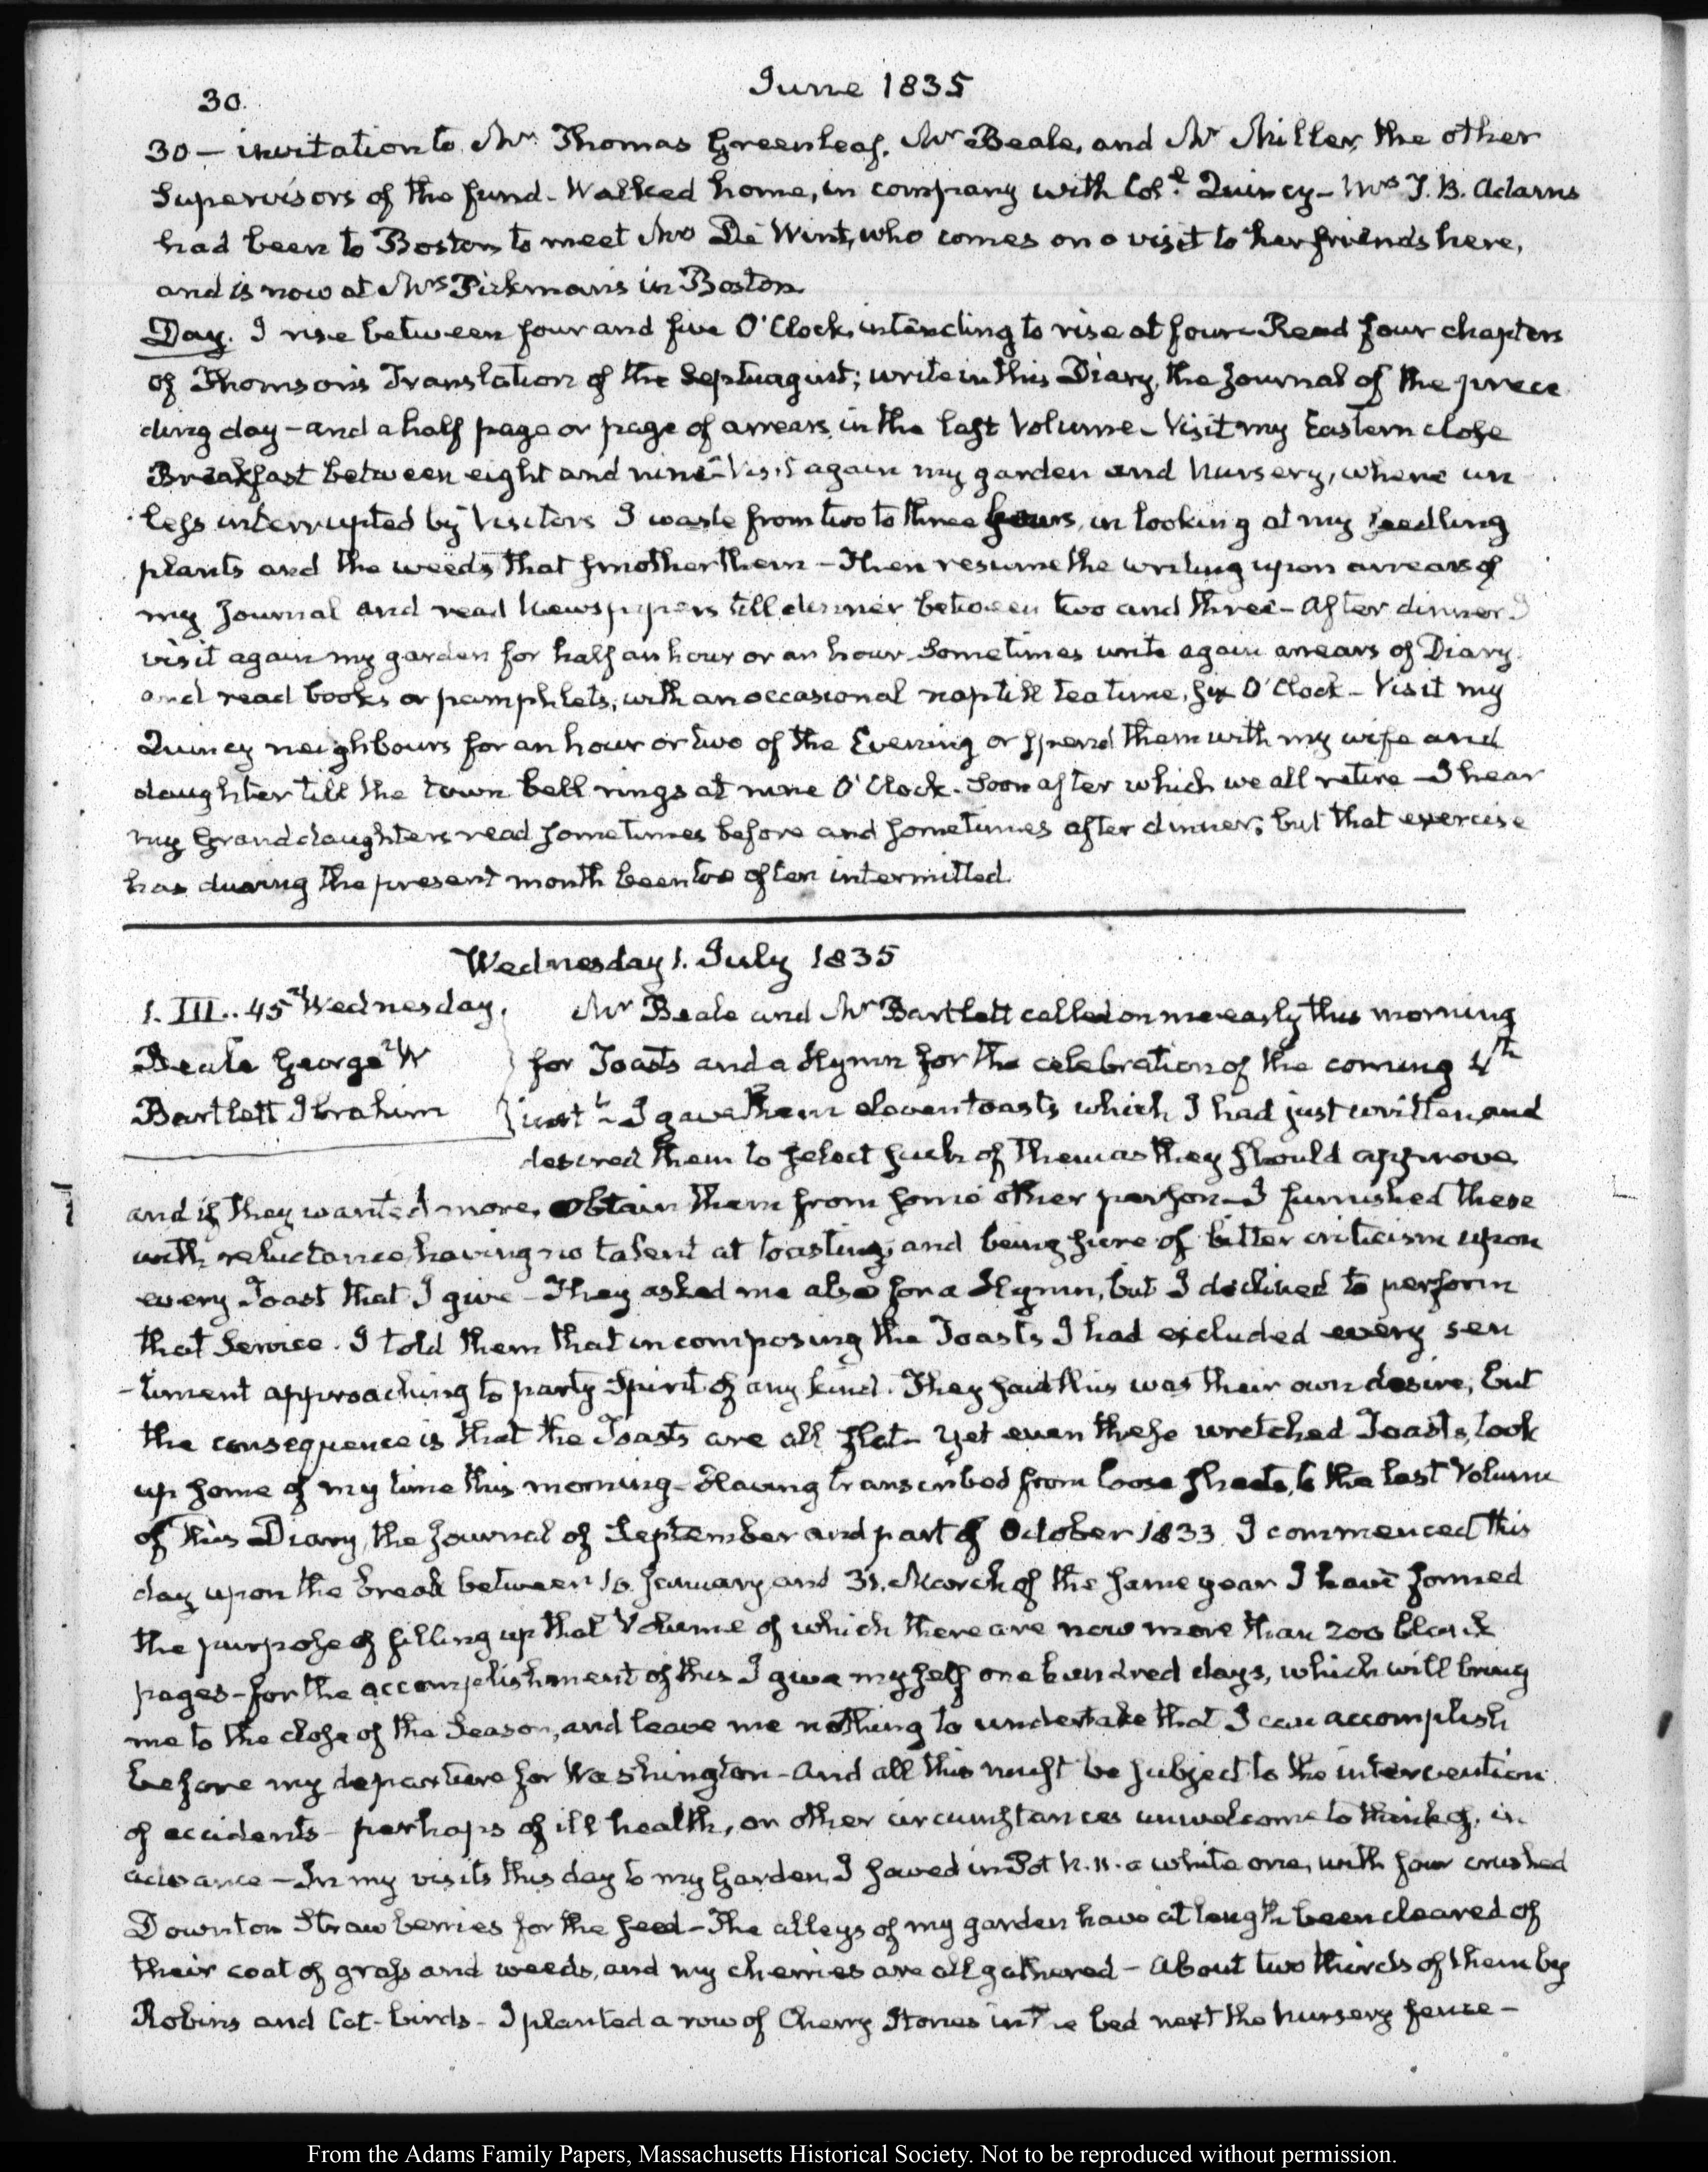 June 1835
30.
30 — invitation to Mr Thomas Greenleaf, Mr Beale, and Mr Miller, the other
Supervisors of the fund. Walked home, in company with Coll. Quincy — Mrs T. B. Adams
had been to Boston to meet Mrs De Wint, who comes on a visit to her friends here,
and is now at Mrs Pickman's in Boston.
Day. I rise between four and five O'Clock, intending to rise at four — Read four chapters
of Thomson's Translation of the Septuagint; write in this Diary, the Journal of the prece
ding day — and a half page or page of arrears in the last Volume — Visit my Eastern close
Breakfast between eight and nine — Visit again my garden and Nursery, where un
less interrupted by Visitors I waste from two to three hours, in looking at my seedling
plants and the weeds that smother them — Then resume the writing upon arrears of
my Journal and read Newspapers till dinner between two and three — After dinner I
visit again my garden for half an hour or an hour. Sometimes write again arrears of Diary
and read books or pamphlets, with an occasional nap till tea time, six O'Clock — Visit my
Quincy neighbours for an hour or two of the Evening or spend them with my wife and
daughter till the town bell rings at nine O'Clock. Soon after which we all retire — I hear
my Granddaughters read sometimes before and sometimes after dinner; but that exercise
has during the present month been too often intermitted.
Wednesday 1. July 1835
1. III..45. Wednesday.
Beale George W
Bartlett Ibrahim
Mr Beale and Mr Bartlett called on me early this morning
for Toasts and a Hymn for the celebration of the coming 4th
inst. — I gave them eleven toasts which I had just written, and
desired them to select such of them as they should approve
and if they wanted more, obtain them from some other person — I furnished these
with reluctance, having no talent at toasting, and being sure of bitter criticism upon
every Toast that I give — They asked me also for a Hymn, but I declined to perform
that Service. I told them that in composing the Toasts I had excluded every sen
-timent approaching to party Spirit of any kind. They said this was their own desire; but
the consequence is that the Toasts are all flat — Yet even these wretched Toasts, took
up some of my time this morning — Having transcribed from loose sheets, to the last Volume
of this Diary, the Journal of September and part of October 1833 I commenced this
day upon the break between 10. January and 31. March of the same year I have formed
the purpose of filling up that Volume of which there are now more than 200 blank
pages — for the accomplishment of this I give myself one hundred days, which will bring
me to the close of the Season, and leave me nothing to undertake that I can accomplish
before my departure for Washington — And all this must be subject to the intervention
of accidents — perhaps of ill health, or other circumstances unwelcome to think of, in
advance — In my visits this day to my Garden, I sowed in Pot N. 11. a white one, with four crushed
Downton Strawberries for the seed — The alleys of my garden have at length been cleared of
their coat of grass and weeds, and my cherries are all gathered — About two thirds of them by
Robins and Cat-birds — I planted a row of Cherry Stones in the bed next the Nursery fence —
From the Adams Family Papers, Massachusetts Historical Society. Not to be reproduced without permission.